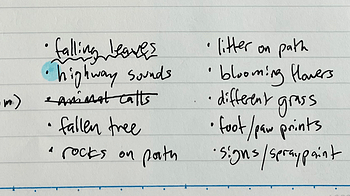 · falling leaves
· highway sounds
m) · animal calls
· fallen tree
· rocks on path
· litter on path
· blooming flowers
· different grass
· foot/paw prints
· signs/spraypaint